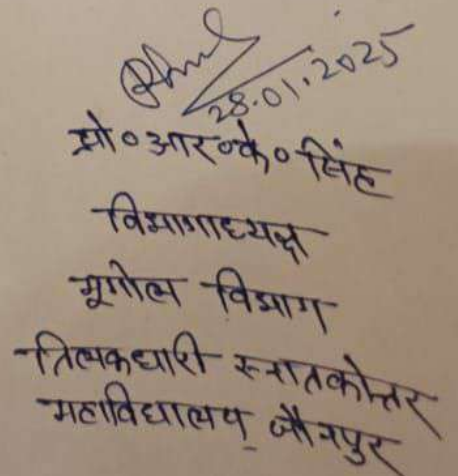 28.01.2025
प्रो० आर० के० सिंह
विभागाध्यक्ष
भूगोल विभाग
तिलकधारी स्नातकोत्तर
महाविद्यालय जौनपुर